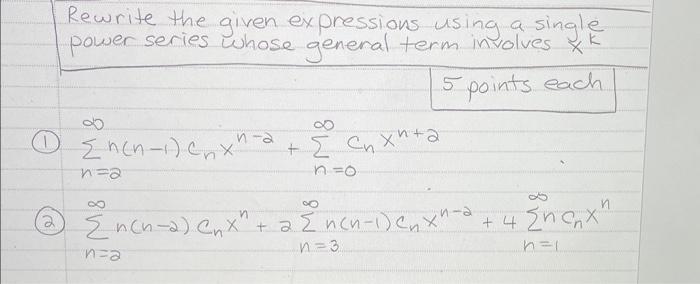 Rewrite the given expressions using a single
power series whose general term involves x^k
5 points each
① ∞Σn=2 n(n-1) Cn x^n-2 + ∞Σn=0 Cn x^n+2
② ∞Σn=2 n(n-2) Cn x^n + 2 ∞Σn=3 n(n-1) Cn x^n-2 + 4 ∞Σn=1 n Cn x^n